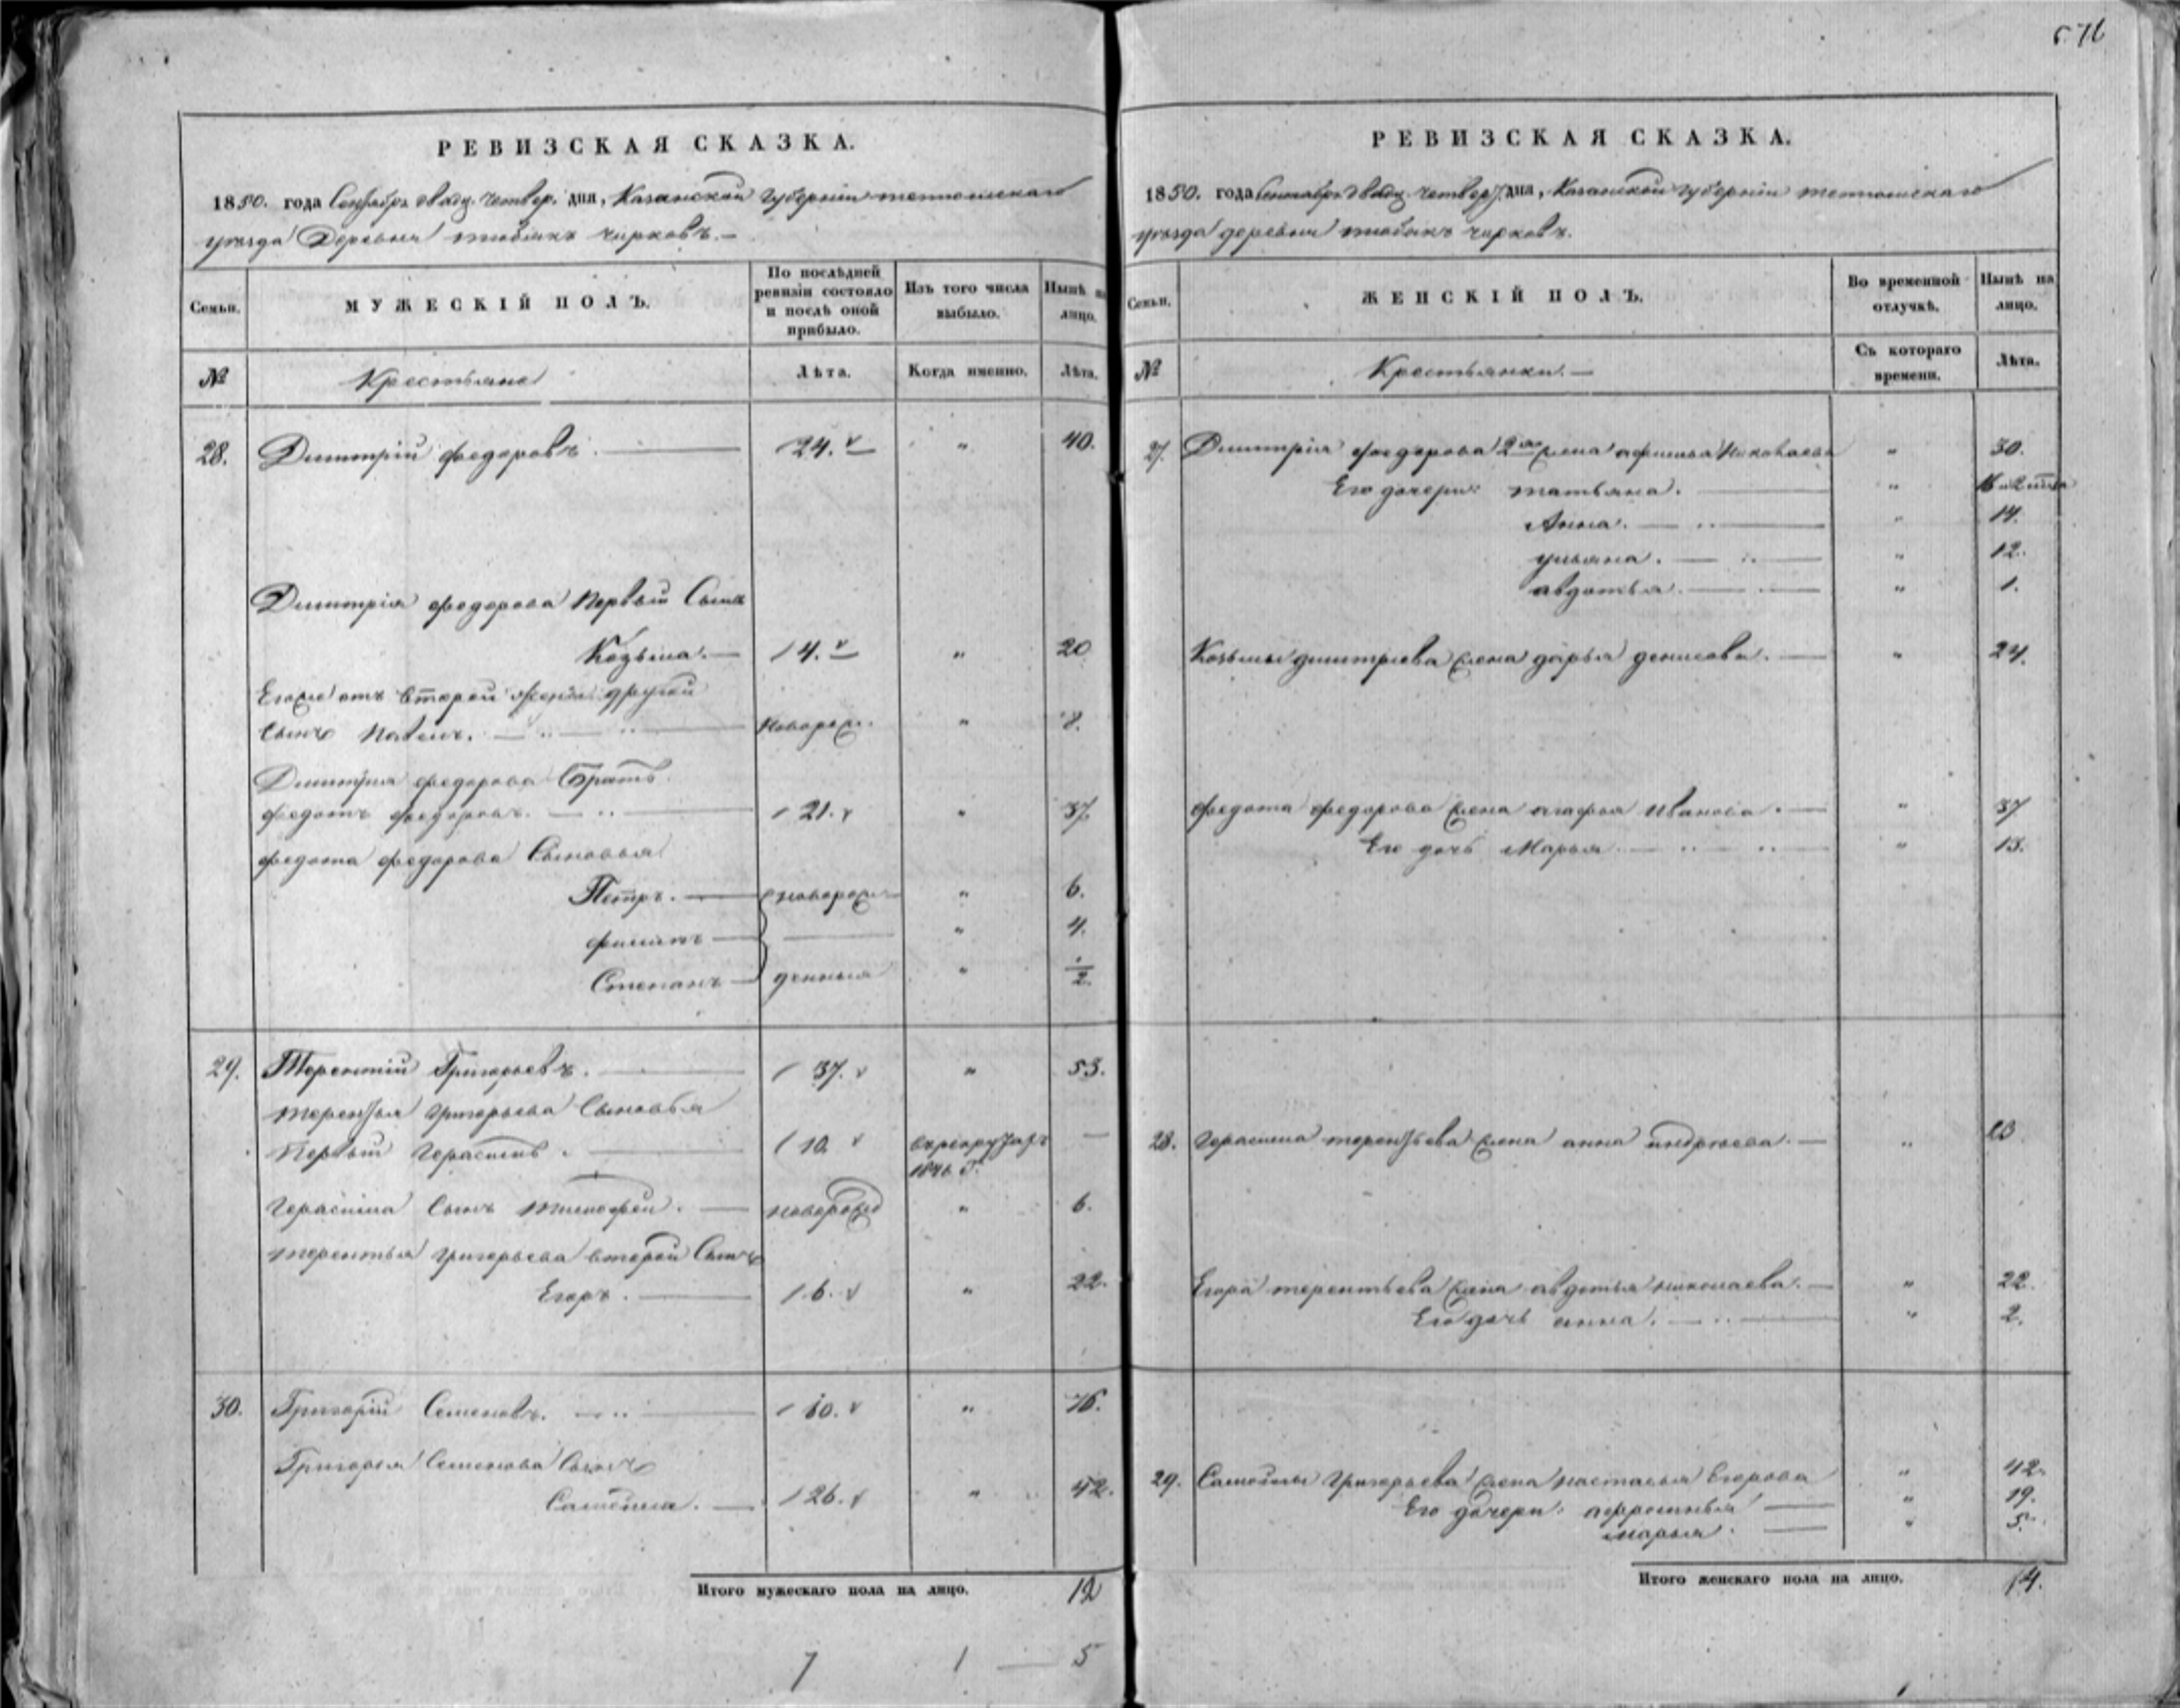 576
РЕВИЗСКАЯ СКАЗКА.
1850. года Сентябрь двадц. Четвер. дня, Казанской губерніи тетюшскаго
уѣзда Деревни тюбякъ чирковъ.
Семьи. МУЖЕСКІЙ ПОЛЪ. По послѣдней ревизіи состояло и послѣ оной прибыло. Изъ того числа выбыло. Нынѣ на лицо.
№ Крестьяне Лѣта. Когда именно. Лѣта.
28. Димитрій федоровъ. 24. " 40.
Димитрія федорова Первый Сынъ
Козьма. 4. " 20
Его же отъ второй жены другой
Сынъ Павелъ. новорож. " 8.
Димитрия федорова Братъ
федотъ федоровъ. 21. " 37
федота федорова Сыновья
Петръ. новорож " 6.
филипъ " 4.
Степанъ денныя " 1/2.
29. Терентий Григорьевъ. 37. " 53.
терентья григорьева Сыновья
Первый Герасимъ. 10. въ рекрутахъ —
1846 г.
Герасима Сынъ тимофей. новорожд " 6.
терентья григорьева второй Сынъ
Егоръ. 6. " 22.
30. Григорій Семеновъ. 60. " 76.
Григорья Семенова Сынъ
Самойла. 26. " 42.
Итого мужескаго пола на лицо. 12
7 1 — 5
РЕВИЗСКАЯ СКАЗКА.
1850. года Сентябрь двадц. четвер. дня, Казанской губерніи тетюшскаго
уѣзда деревни тюбякъ чирковъ.
Семьи. ЖЕНСКІЙ ПОЛЪ. Во временной отлучкѣ. Нынѣ на лицо.
№ Крестьянки. Съ котораго времени. Лѣта.
27. Димитрія федорова 2я жена афимья " 30.
Его дочери: татьяна. " 16
Анна. " 14.
ульяна. " 12.
авдотья. " 1.
Козьмы димитриева жена дарья денисова. " 24.
федота федорова жена агафья Иванова. " 37
Его дочь Марья " 13.
28. Герасима терентьева жена анна андреева. "
Егора терентьева жена авдотья николаева. " 22.
Его дочь анна. " 2.
29. Самойлы Григорьева жена настасья Егорова " 42.
Его дочери: афросинья " 19.
марья. " 5.
Итого женскаго пола на лицо. 14.